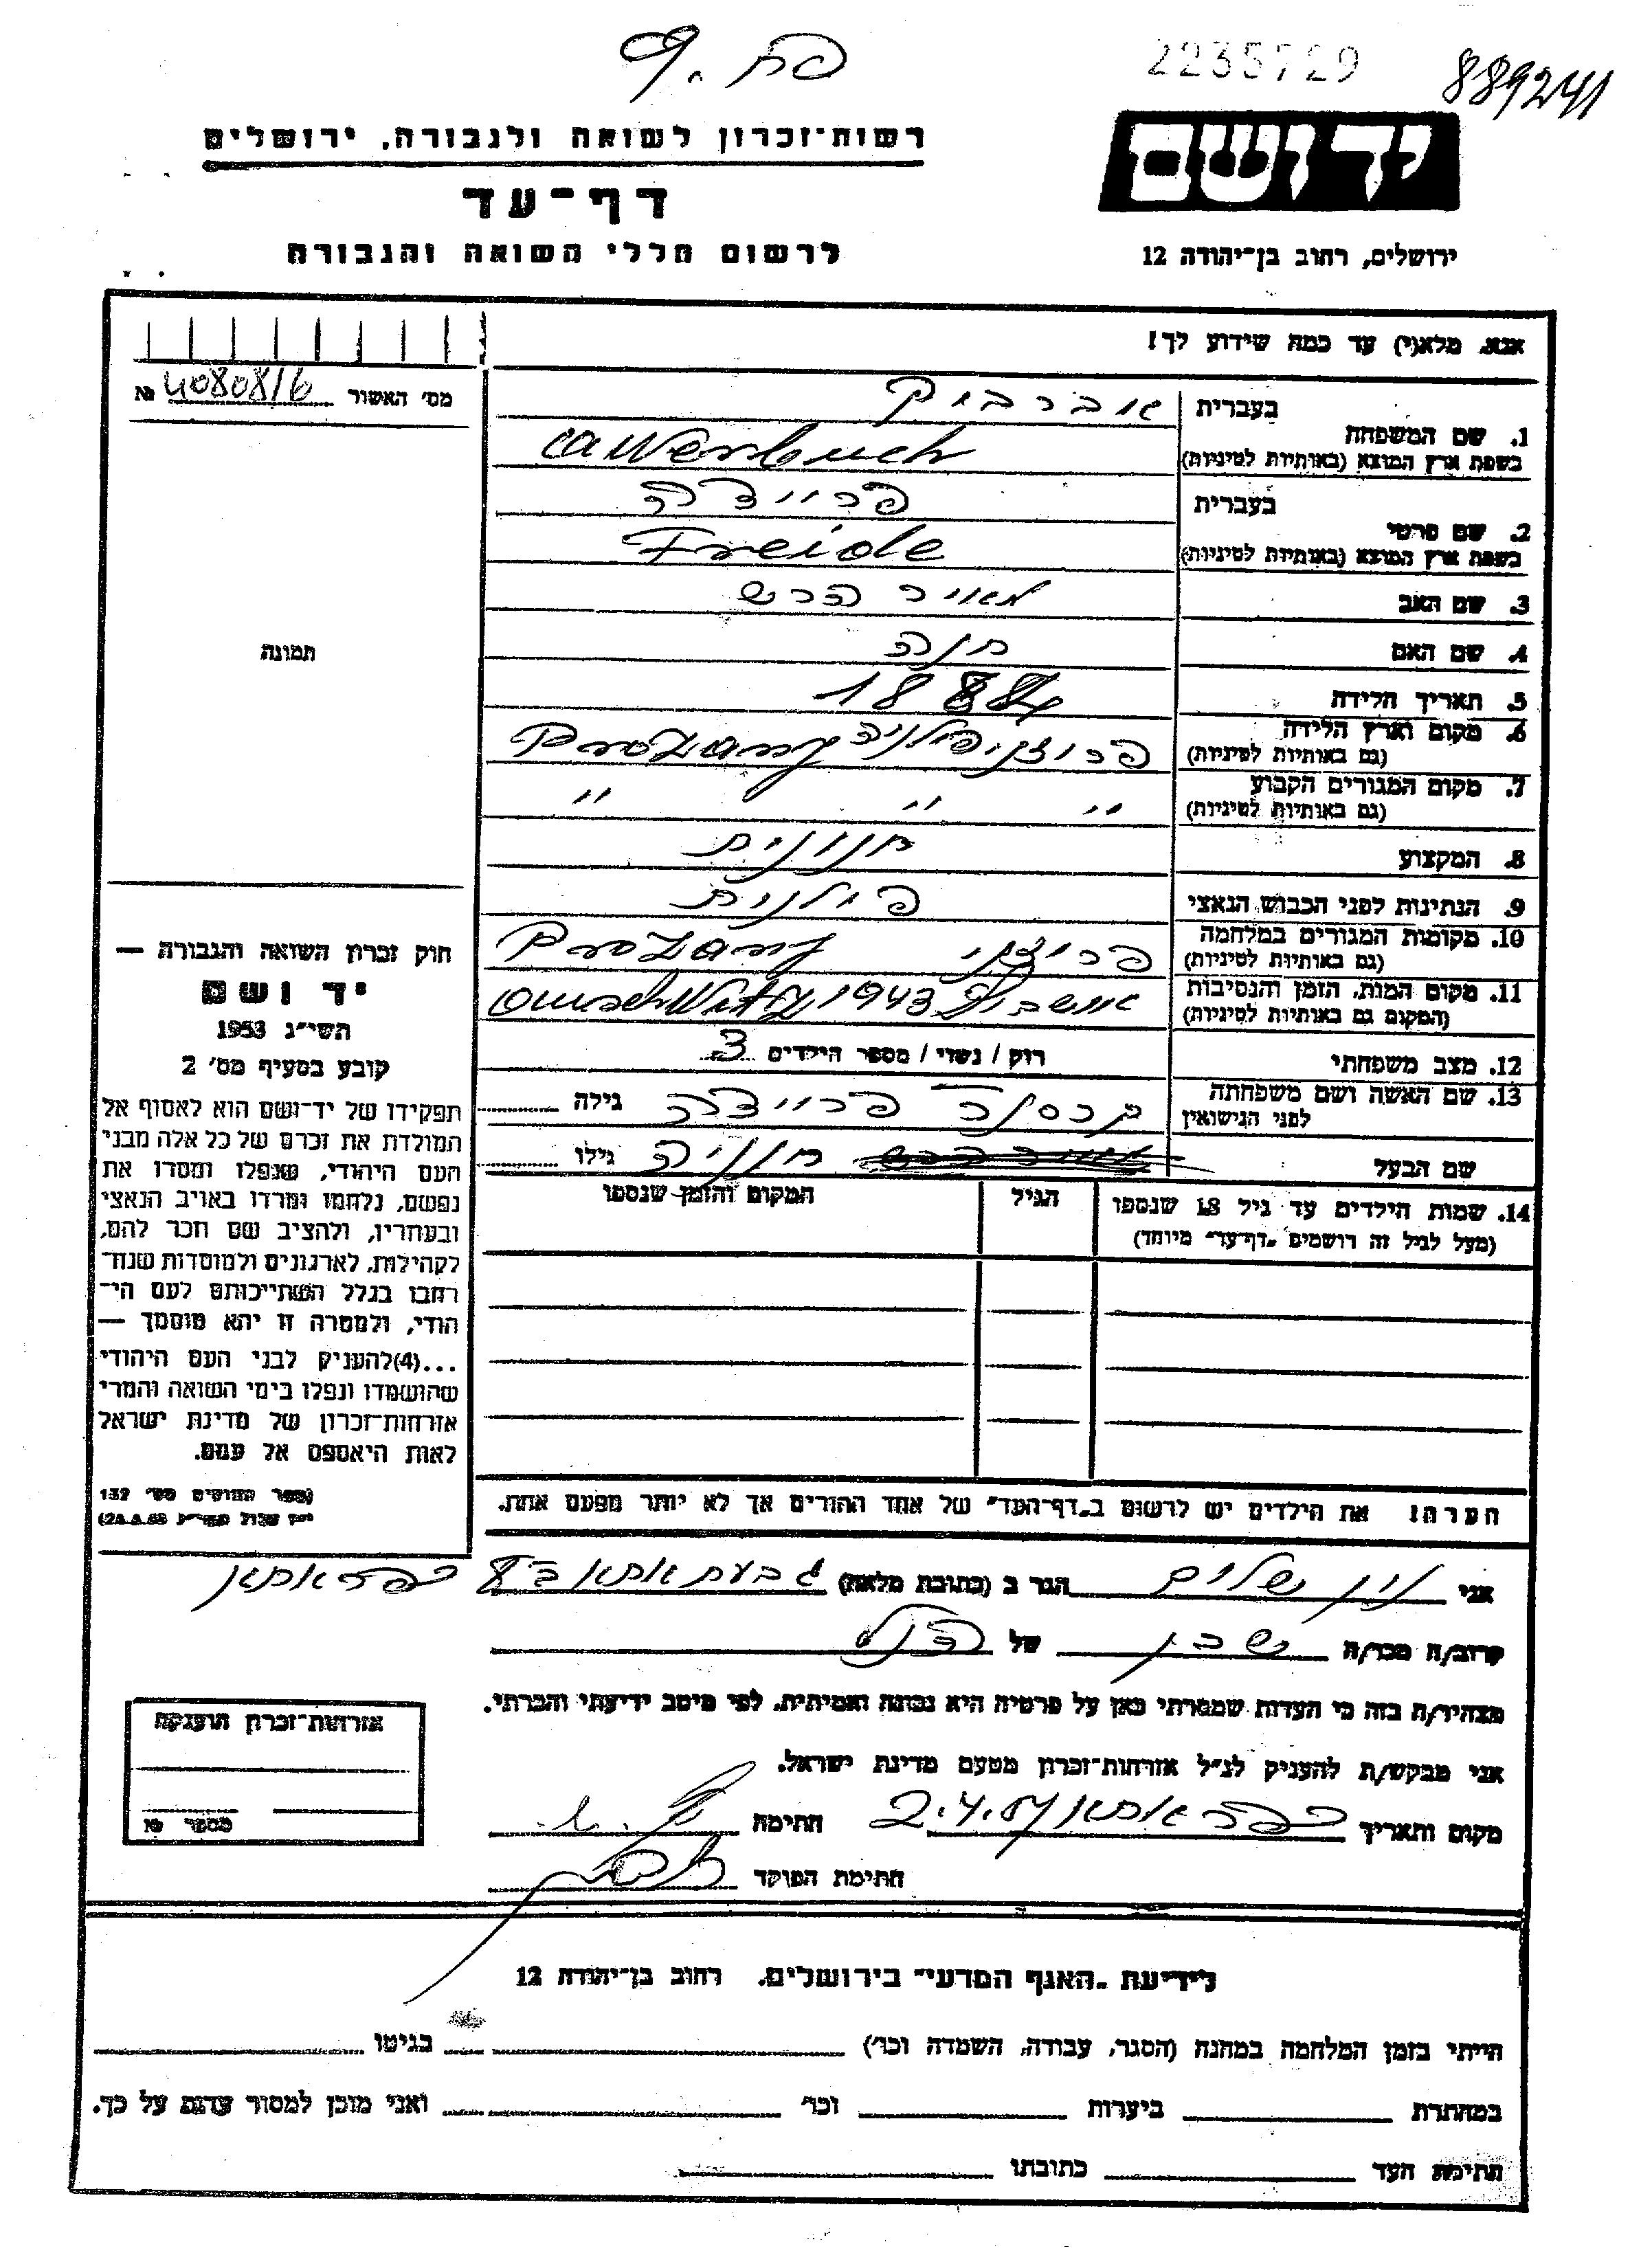 פח. 9
2235729
889241
יד ושם
רשות־זכרון לשואה ולגבורה, ירושלים
דף־עד
לרשום חללי השואה והגבורה
ירושלים, רחוב בן־יהודה 12
אנא, מלא(י) עד כמה שידוע לך!
מס׳ האשור № 4080816
תמונה
1. שם המשפחה
בעברית אוברבוק
בשפת ארץ המוצא (באותיות לטיניות) Awerbuch
2. שם פרטי
בעברית פריידה
בשפת ארץ המוצא (באותיות לטיניות) Freide
3. שם האב מאיר הרש
4. שם האם חנה
5. תאריך הלידה 1884
6. מקום וארץ הלידה
(גם באותיות לטיניות) פרוז'ני פולניה Prozany
7. מקום המגורים הקבוע
(גם באותיות לטיניות) " " "
8. המקצוע חנונית
9. הנתינות לפני הכבוש הנאצי פולנית
10. מקומות המגורים במלחמה
(גם באותיות לטיניות) פרוז'ני Prozany
11. מקום המות, הזמן והנסיבות
(המקום גם באותיות לטיניות) אושביץ 1943 Auschwitz
12. מצב משפחתי רוק / נשוי / מספר הילדים 3
13. שם האשה ושם משפחתה
לפני הנישואין פריידה גילה
שם הבעל חנניה גילו
14. שמות הילדים עד גיל 18 שנספו
(מעל לגיל זה רושמים „דף־עד״ מיוחד)
הגיל
המקום והזמן שנספו
הערה! את הילדים יש לרשום ב„דף־העד״ של אחד ההורים אך לא יותר מפעם אחת.
חוק זכרון השואה והגבורה —
יד ושם
תשי״ג 1953
קובע בסעיף מס׳ 2
תפקידו של יד־ושם הוא לאסוף אל
המולדת את זכרם של כל אלה מבני
העם היהודי, שנפלו ומסרו את
נפשם, נלחמו ומרדו באויב הנאצי
ובעוזריו, ולהציב שם וזכר להם,
לקהילות, לארגונים ולמוסדות שנח־
רבו בגלל השתייכותם לעם הי־
הודי, ולמטרה זו יהא מוסמך —
...(4)להעניק לבני העם היהודי
שהושמדו ונפלו בימי השואה והמרי
אזרחות־זכרון של מדינת ישראל
לאות היאספם אל עמם.
(ספר החוקים מס׳ 132
אני לוין שלום הגר ב (כתובת מלאה) גבעת אתא ב' 8 כפר אתא
קרוב/ה מכר/ה שכן של הנ"ל
מצהיר/ה בזה כי העדות שמסרתי כאן על פרטיה היא נכונה ואמיתית, לפי מיטב ידיעתי והכרתי.
אני מבקש/ת להעניק לנ״ל אזרחות־זכרון מטעם מדינת ישראל.
מקום ותאריך כפר אתא 2.4.57 חתימה
חתימת הפוקד
אזרחות־זכרון הוענקה
מספר №
לידיעת „האגף המדעי״ בירושלים, רחוב בן־יהודה 12
הייתי בזמן המלחמה במחנה (הסגר, עבודה, השמדה וכו׳) בגיטו
במחתרת ביערות וכו׳ ואני מוכן למסור עדות על כך.
חתימת העד כתובתו